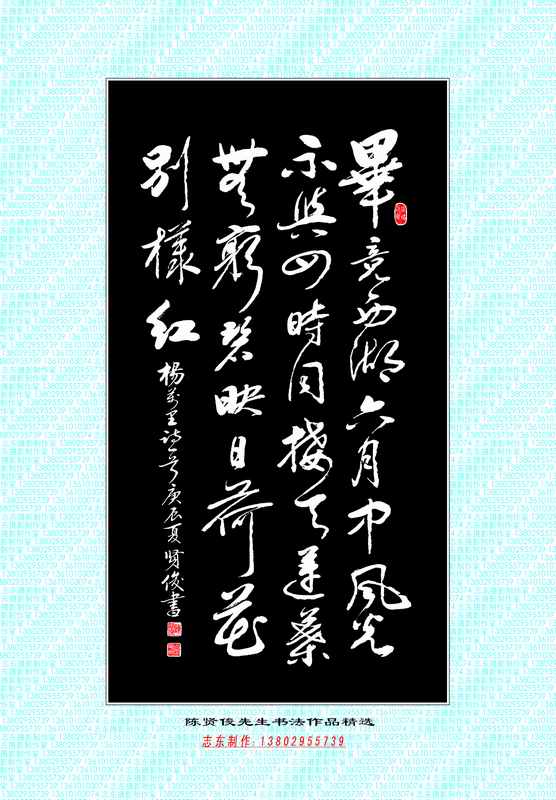 畢竟西湖六月中風光
不與四時同接天蓮葉
無窮碧映日荷花
別樣紅
楊萬里詩一首庚辰夏賢俊書
陈贤俊先生书法作品精选
志东制作:13802955739